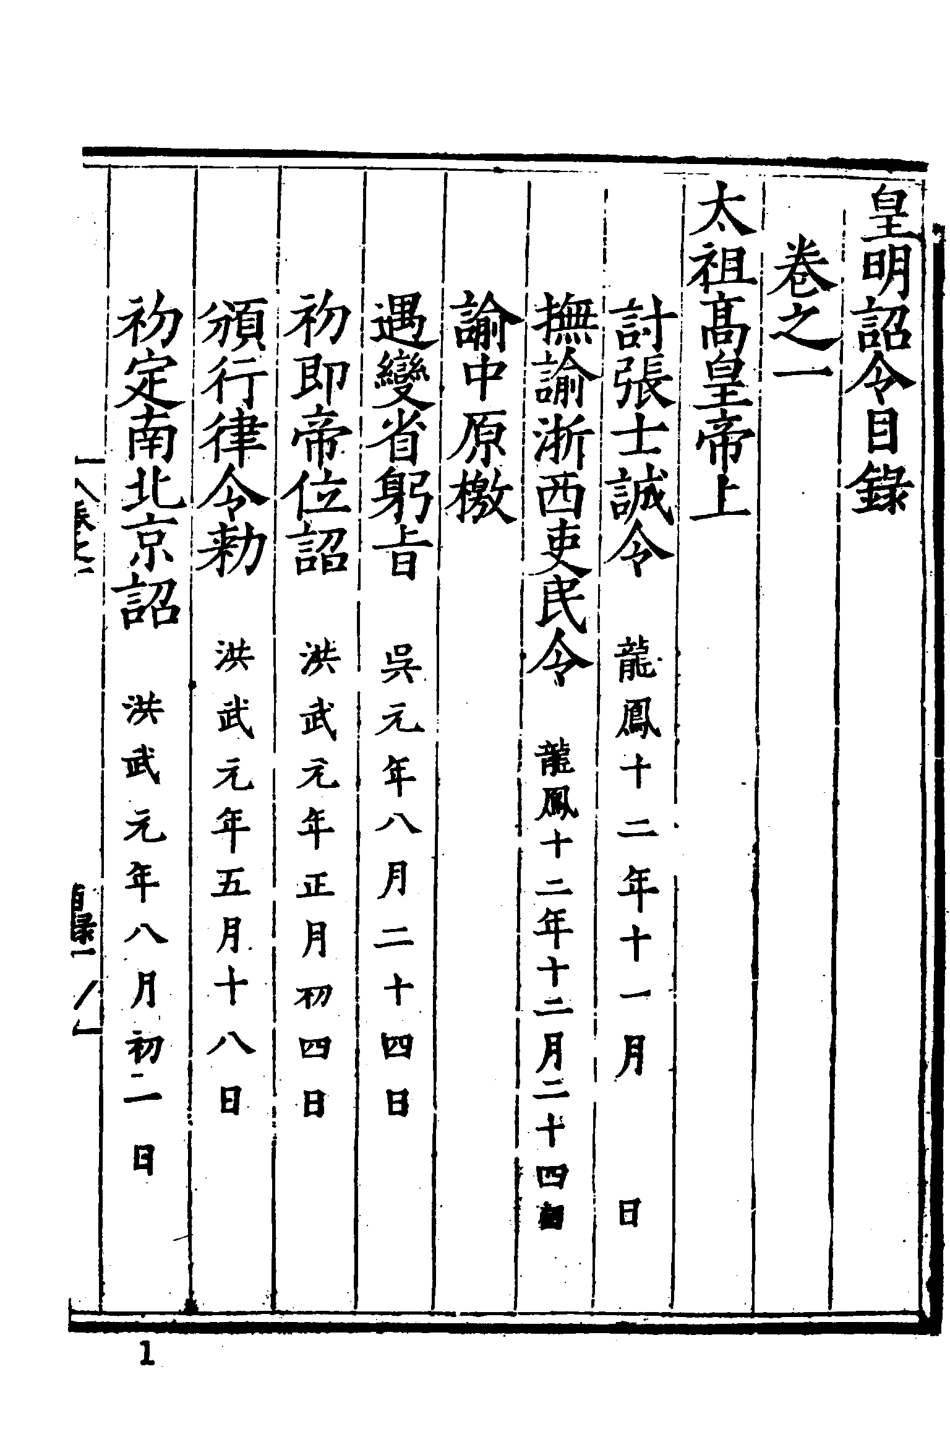 皇明詔令目錄
卷之一
太祖高皇帝上
討張士誠令 龍鳳十二年十一月 日
撫諭浙西吏民令 龍鳳十二年十二月二十四
諭中原檄
遇變省躬旨 吳元年八月二十四日
初即帝位詔 洪武元年正月初四日
頒行律令勑 洪武元年五月十八日
初定南北京詔 洪武元年八月初二日
目錄一
1